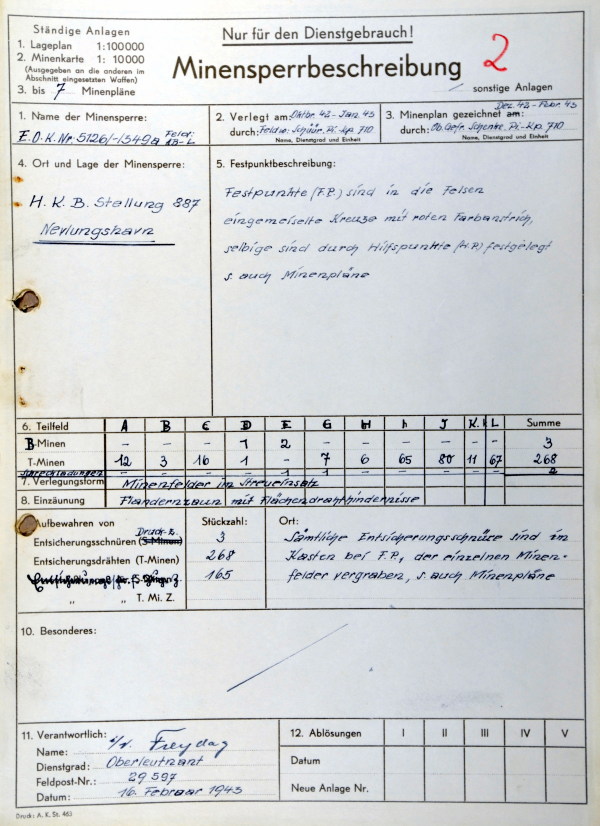 Ständige Anlagen
1. Lageplan 1:100000
2. Minenkarte 1: 10000
(Ausgegeben an die anderen im
Abschnitt eingesetzten Waffen)
3. bis 7 Minenpläne
Nur für den Dienstgebrauch!
Minensperrbeschreibung
2
sonstige Anlagen
1. Name der Minensperre:
E.O.K. Nr. 5126/-1349a Feld: 1B-L
2. Verlegt am: Oktbr. 42 - Jan. 43
durch: Feldw. Schüür. Pi.-Kp. 710
Name, Dienstgrad und Einheit
3. Minenplan gezeichnet am: Dez. 42 - Febr. 43
durch: Ob. Gefr. Schenke, Pi-Kp. 710
Name, Dienstgrad und Einheit
4. Ort und Lage der Minensperre:
H. K. B. Stellung 887
Nevlungshavn
5. Festpunktbeschreibung:
Festpunkte (F.P.) sind in die Felsen
eingemeiselte Kreuze mit roten Farbanstrich,
selbige sind durch Hilfspunkte (H.P.) festgelegt
s. auch Minenpläne
6. Teilfeld A B C D E G H h J K L Summe
B-Minen - - - 1 2 - - - - - - 3
T-Minen 12 3 16 1 - 7 6 65 80 11 67 268
Sprengladungen - - - - 1 1 - - - - - 2
7. Verlegungsform Minenfelder im Streueinsatz
8. Einzäunung Flandernzaun mit Flächendrahthindernisse
Aufbewahren von Stückzahl: Ort:
Entsicherungsschnüren (S-Minen) Druck-Z. 3
Entsicherungsdrähten (T-Minen) 268
165
" " T. Mi. Z.
Sämtliche Entsicherungsschnüre sind in
Kasten bei F.P., der einzelnen Minen-
felder vergraben, s. auch Minenpläne
10. Besonderes:
11. Verantwortlich:
Name: Freydag
Dienstgrad: Oberleutnant
Feldpost-Nr.: 29597
Datum: 16. Februar 1943
12. Ablösungen I II III IV V
Datum
Neue Anlage Nr.
Druck: A. K. St. 463